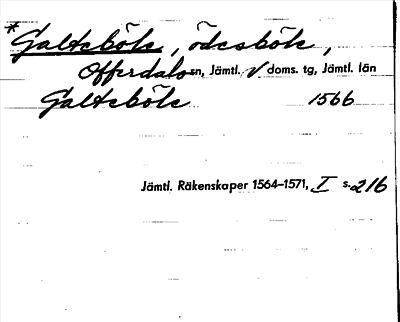 *Galteböle, ödesböle,
Offerdals sn, Jämtl. V. doms. tg, Jämtl. län
Galteböle 1566
Jämtl. Räkenskaper 1564–1571, I s. 216